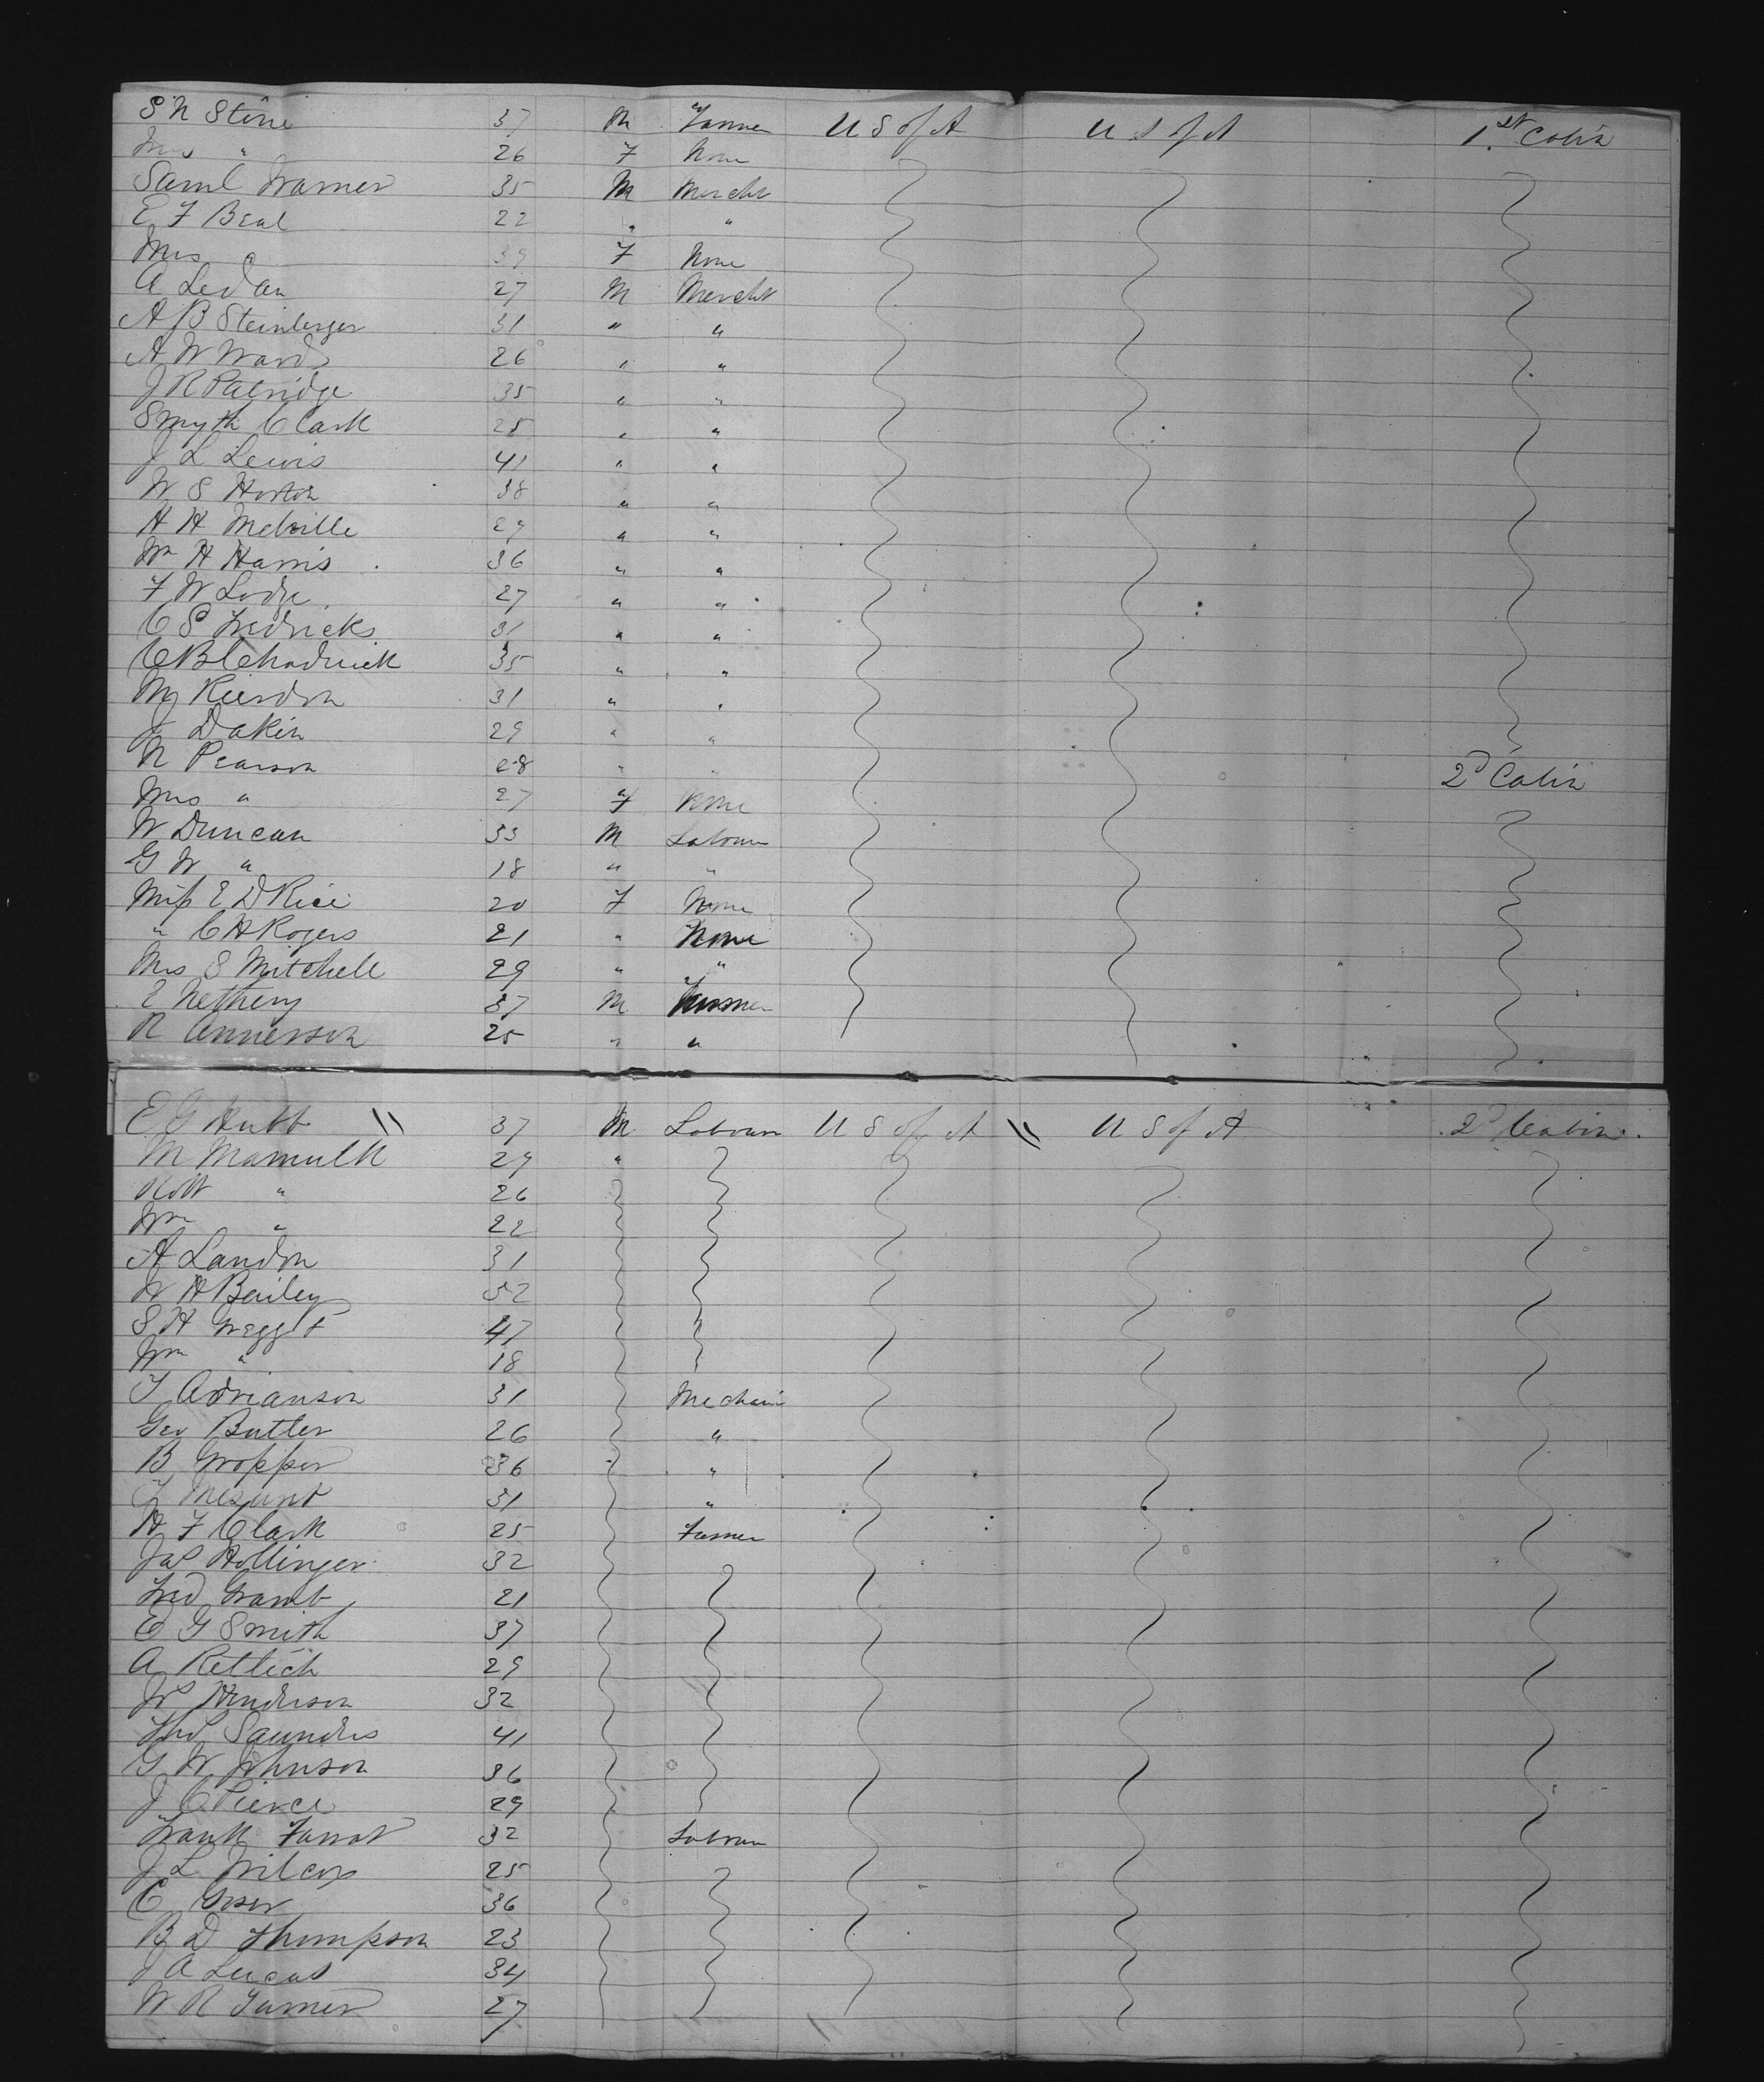 S N Stone 37 M Farmer U S of A U S of A 1st Cabin
Mrs " 26 F None
Saml Warner 35 M Mercht
E F Beal 22 " "
Mrs C 39 F None
A Ledan 27 M Mercht
A B Steinberger 31 " "
A W Ward 26 " "
J R Patridge 35 " "
Smyth Clark 28 " "
J L Lewis 41 " "
W S Horton 38 " "
H H Melville 29 " "
Wm H Harris 36 " "
F W Lodge 27 " "
C S Fredricks 31 " "
C B Chadwick 35 " "
M Rierdon 31 " "
J Dakin 29 " "
N Pearson 28 " " 2d Cabin
Mrs " 27 F None
W Duncan 33 M Labourer
G W " 18 " "
Miss E D Rice 20 F None
" C H Rogers 21 " None
Mrs S Mitchell 29 " "
E Nethery 37 M Farmer
R Annesson 25 " "
E G Hubb 37 M Labourer U S of A U S of A 2d Cabin
M Mamulk 29 "
Robt " 26
Wm " 22
A Landon 31
W H Bailey 52
S H Weggit 47
Wm " 18
T Adrianson 31 Mechanic
Geo Butler 26 "
B Wopper 36 "
31 "
H F Clark 25 Farmer
Jas Hollinger 32
Fred 21
E G Smith 37
A Rettich 29
W Henderson 32
Thos Saunders 41
G W Johnson 36
J C Pierce 29
Frank Farrar 32 Labourer
J L Wilcox 25
C 36
B D Thompson 23
J A Lucas 34
W R Turner 27